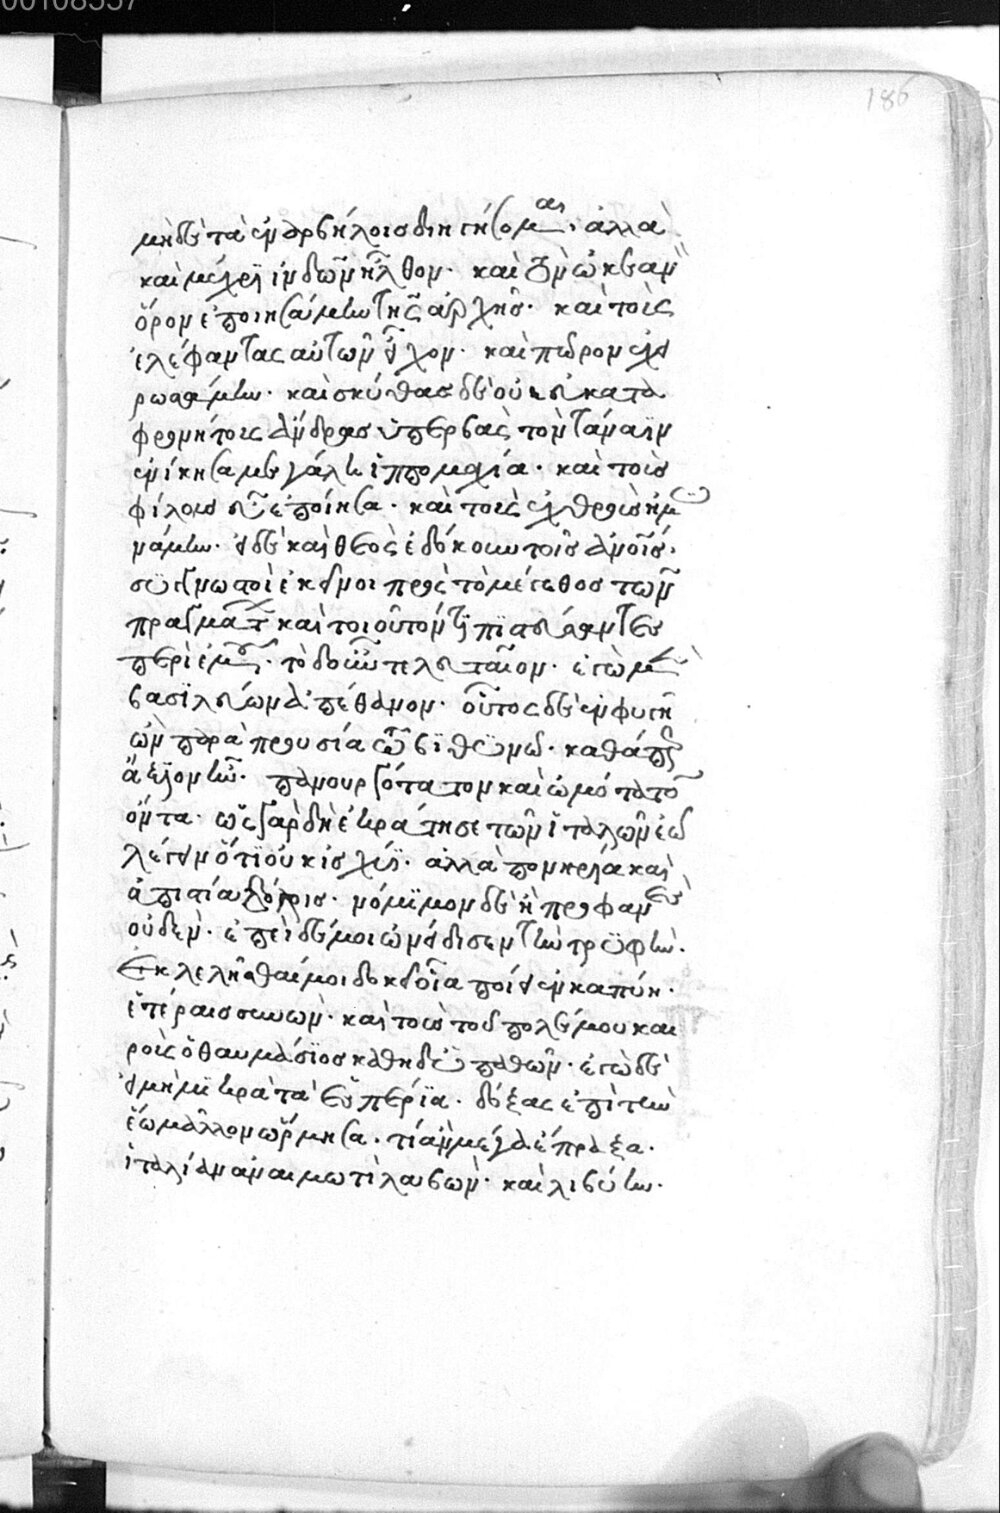 μὴδὲ τὰ ἐν ἀρβήλοις διηγήσομαι, ἀλλὰ
καὶ μέχρι ἰνδῶν ἦλθον· καὶ τὸν ὠκεανὸν
ὅρον ἐποιησάμην τῆς ἀρχῆς· καὶ τοὺς
ἐλέφαντας αὐτῶν εἷλον· καὶ πῶρον ἐχει
ρωσάμην· καὶ σκύθας δὲ οὐκ εὐκατα
φρονήτους ἄνδρας ὑπερβὰς τὸν τάναϊν
ἐνίκησα μεγάλη ἱππομαχία· καὶ τοὺς
φίλους εὖ ἐποίησα· καὶ τοὺς ἐχθροὺς ἠμυ
νάμην· εἰ δὲ καὶ θεὸς ἐδόκουν τοῖς ἀνοις·
συγγνωστοὶ ἐκεῖνοι πρὸς τὸ μέγεθος τῶν
πραγμάτων καὶ τοιοῦτόν τι πιστεύσαντες
περὶ ἐμοῦ· τὸ δοῦν τελευταῖον· ἐγὼ μὲν
βασιλεύων ἀπέθανον· οὗτος δὲ ἐν φυγῆ
ὢν παρὰ προυσία τῶ βιθυνῶ· καθάπερ
ἄξιον ἦν· πανουργότατον καὶ ὠμότατον
ὄντα· ὡς γὰρ δὴ ἐκράτησε τῶν ἰταλῶν ἐῶ
λέγειν ὅτι οὐκ ἰσχύϊ· ἀλλὰ πονηρία καὶ
ἀπιστία καὶ δόλοις· νόμιμον δὲ ἢ προφανὲς
οὐδέν· ἐπεὶ δέ μοι ὠνείδισεν τὴν τρυφὴν·
ἐκλελῆσθαί μοι δοκεῖ οἷα ποίει ἐν καπύη·
ἑτέραις συνὼν· καὶ τοὺς τοῦ πολέμου και
ροὺς ὁ θαυμάσιος καθηδυπαθῶν· ἐγὼ δὲ
εἰ μὴ μικρὰ τὰ ἑσπέρια· δόξας ἐπὶ τὴν
ἕω μᾶλλον ὥρμησα· τί ἂν μέγα ἔπραξα·
ἰταλίαν ἀναιμωτὶ λαβὼν· καὶ λιβύην·
186